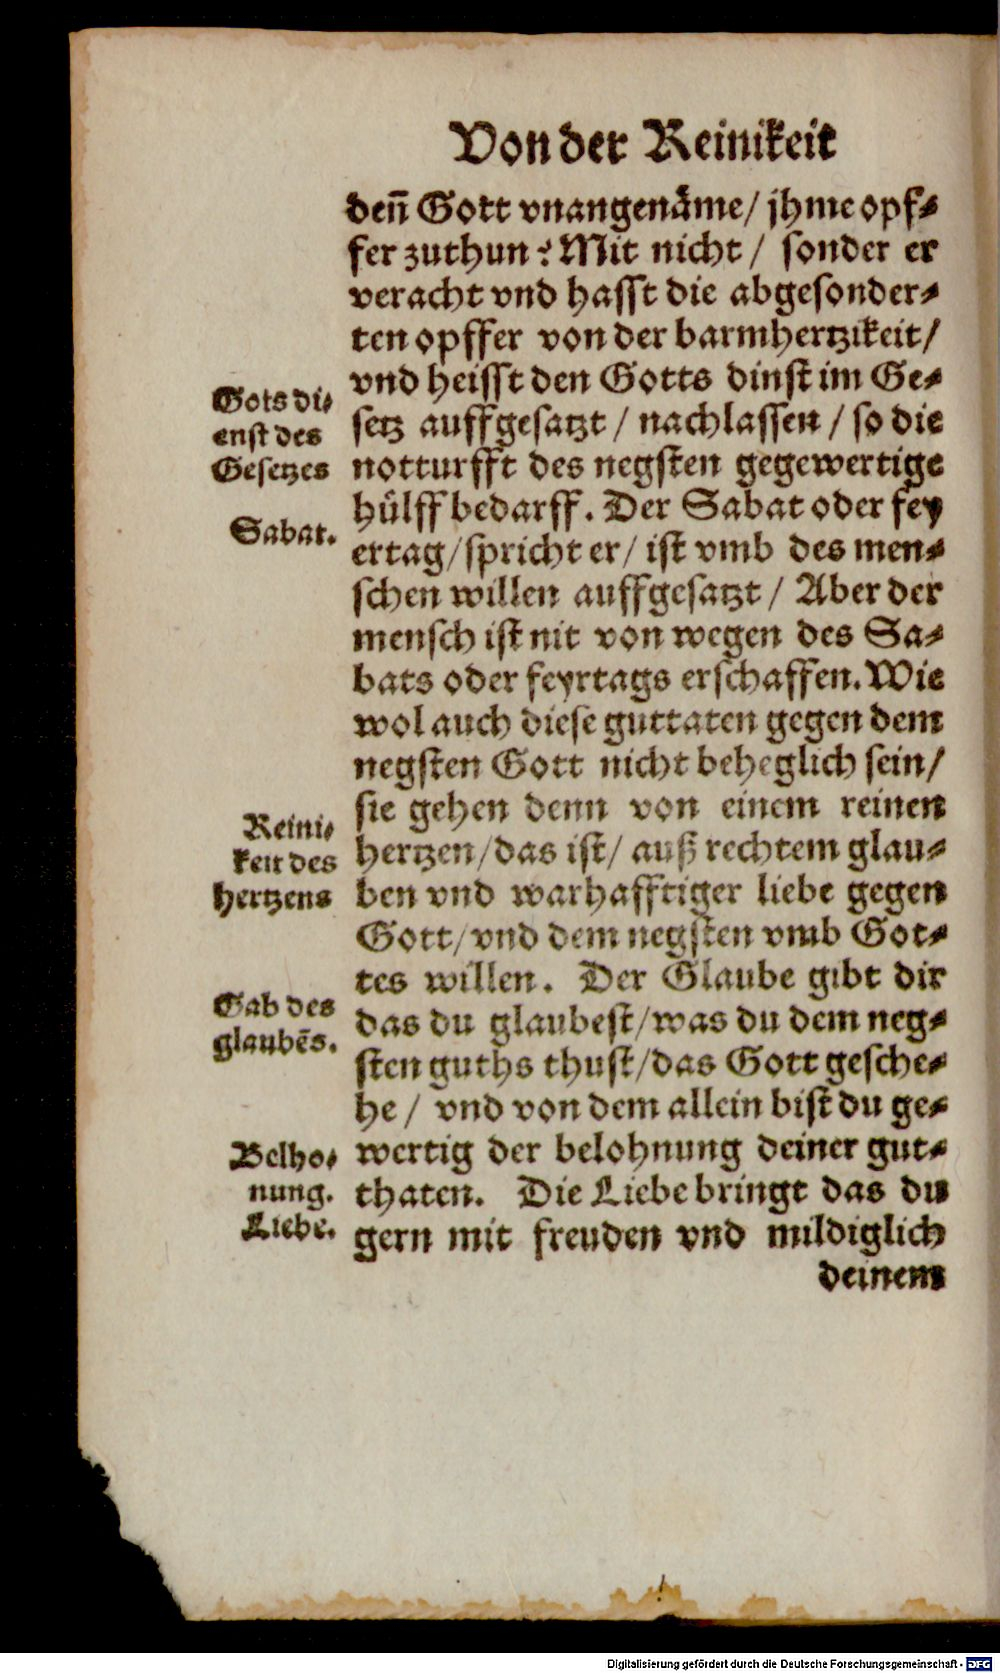 Von der Reinikeit
deñ Gott vnangenäme/ jhme opf-
fer zuthun? Mit nicht/ sonder er
veracht vnd hasst die abgesonder-
ten opffer von der barmhertzikeit/
vnd heisst den Gotts dinst im Ge-
setz auffgesatzt/ nachlassen/ so die
notturfft des negsten gegewertige
hülff bedarff. Der Sabat oder fey
ertag/ spricht er/ ist vmb des men-
schen willen auffgesatzt/ Aber der
mensch ist nit von wegen des Sa-
bats oder feyrtags erschaffen. Wie
wol auch diese guttaten gegen dem
negsten Gott nicht beheglich sein/
sie gehen denn von einem reinen
hertzen/ das ist/ auß rechtem glau-
ben vnd warhafftiger liebe gegen
Gott/ vnd dem negsten vmb Got-
tes willen. Der Glaube gibt dir
das du glaubest/ was du dem neg-
sten guths thust/ das Gott gesche-
he/ vnd von dem allein bist du ge-
wertig der belohnung deiner gut-
thaten. Die Liebe bringt das du
gern mit freuden vnd mildiglich
deinem
Gots di-
enst des
Gesetzes
Sabat.
Reini-
keit des
hertzens
Gab des
glaubẽs.
Belho-
nung.
Liebe.
Digitalisierung gefördert durch die Deutsche Forschungsgemeinschaft - DFG